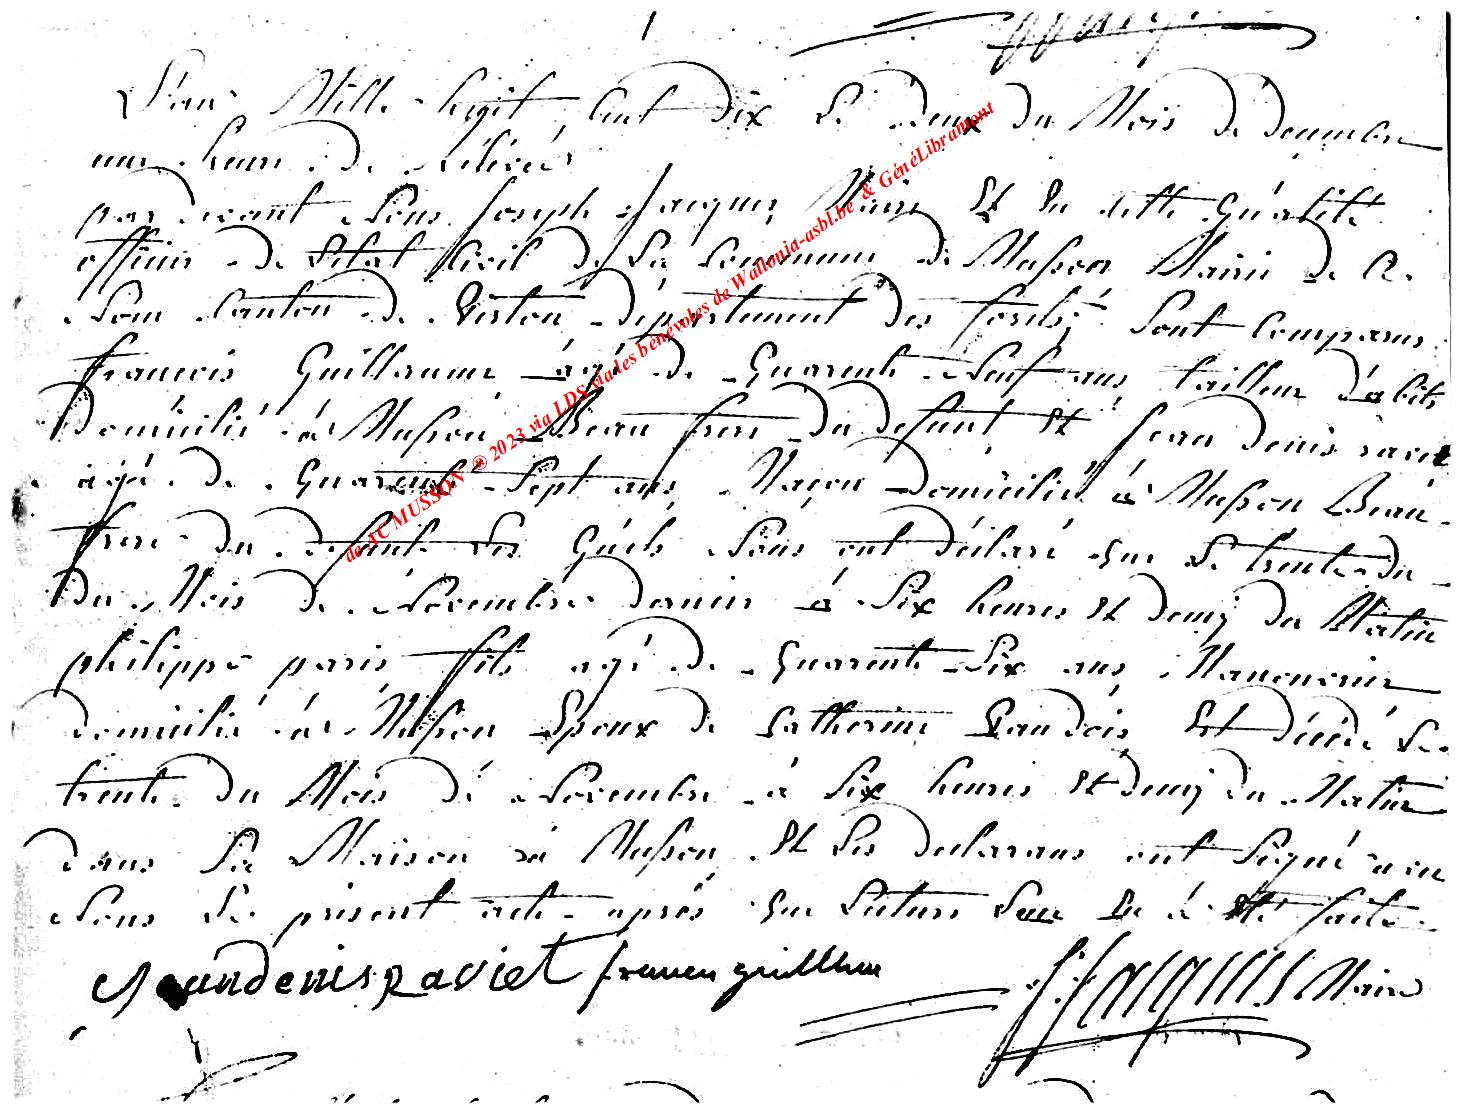 L'an Mille huit Cent dix Le deux du Mois de decembre
une heure de Rélévée
par devant Nous Joseph Jacques Maire Et En cette Quâlité
officier de Létat Civil de La Commune de Musson Mairie de
Nom Canton de Virton département des forêts, Sont Comparus
francois Guillaume âgé de Quarente Neuf ans tailleur d'abits
domicilié à Musson Beau frere du defunt Et Jean denis raviet
agé de Quarente Sept ans Maçon domicilié à Musson Beau
frere du defunt Les Quels Nous ont déclaré que Le trente du
du Mois de Novembre dernier à Six heures Et demy du Matin
philippe paris fils agé de Quarente Six ans Maneuvrier
domicilié à Musson Epoux de Catherine Gaudois Est décédé Le
trente du Mois de Novembre à Six heures Et demy du Matin
dans Sa Maison à Musson Et Les declarans ont Signé avec
Nous Le présent acte après que Lecture Leur En à Eté faite
Jeandenis Raviet francou guillaume J. Jacques Maire
de JC MUSSON ® 2023 via LDS via les bénévoles de Wallonia-asbl.be & GénéLibramont